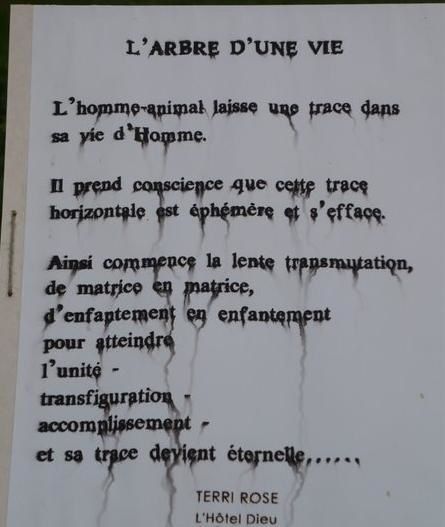 L'ARBRE D'UNE VIE
L'homme-animal laisse une trace dans
sa vie d'Homme.
Il prend conscience que cette trace
horizontale est éphémère et s'efface.
Ainsi commence la lente transmutation,
de matrice en matrice,
d'enfantement en enfantement
pour atteindre
l'unité -
transfiguration -
accomplissement -
et sa trace devient éternelle,.....
TERRI ROSE
L'Hôtel Dieu